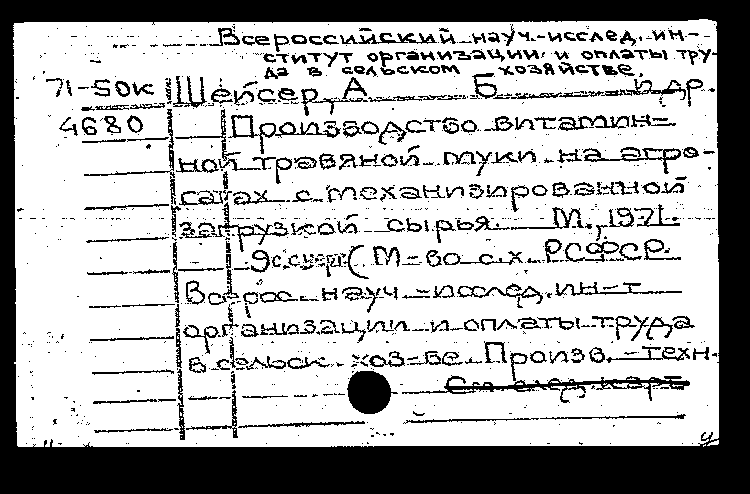 Всероссийский науч.-исслед. ин-
ститут организации и оплаты тру-
да в сельском хозяйстве.
71-50к Шейсер, А Б и др.
4680 Производство витамин-
ной травяной муки на агре-
гатах с механизированной
загрузкой сырья. М., 1971.
9с. с черт. (М-во с.х. РСФСР.
Всерос. науч.-исслед. ин-т
организации и оплаты труда
в сельск. хоз-ве. Произв.-техн.
См. след. карт